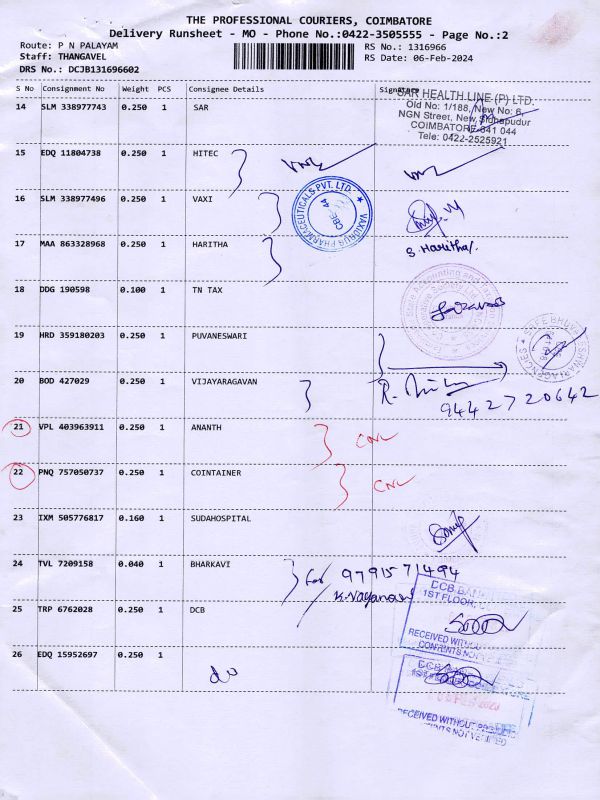 THE PROFESSIONAL COURIERS, COIMBATORE
Delivery Runsheet - MO - Phone No.:0422-3505555 - Page No.:2
Route: P N PALAYAM
Staff: THANGAVEL
DRS No.: DCJB131696602
RS No.: 1316966
RS Date: 06-Feb-2024
S No Consignment No Weight PCS Consignee Details Signature
14 SLM 338977743 0.250 1 SAR
SAR HEALTH LINE (P) LTD.
Old No: 1/188, New No: 6,
NGN Street, New Sidhapudur
COIMBATORE-641 044
Tele: 0422-2525921
15 EDQ 11804738 0.250 1 HITEC
16 SLM 338977496 0.250 1 VAXI
VAXIDRUG PHARMACEUTICALS PVT. LTD.
CBE-44
17 MAA 863328968 0.250 1 HARITHA
S. Haritha
18 DDG 190598 0.100 1 TN TAX
19 HRD 359180203 0.250 1 PUVANESWARI
20 BOD 427029 0.250 1 VIJAYARAGAVAN
9442720642
21 VPL 403963911 0.250 1 ANANTH
CNL
22 PNQ 757050737 0.250 1 COINTAINER
CNL
23 IXM 505776817 0.160 1 SUDAHOSPITAL
24 TVL 7209158 0.040 1 BHARKAVI
for 9791571494
25 TRP 6762028 0.250 1 DCB
DCB BANK
1ST FLOOR,
RECEIVED WITHOUT
CONTENTS NOT
26 EDQ 15952697 0.250 1
do
DCB BANK
RECEIVED WITHOUT
NOT VERIFIED